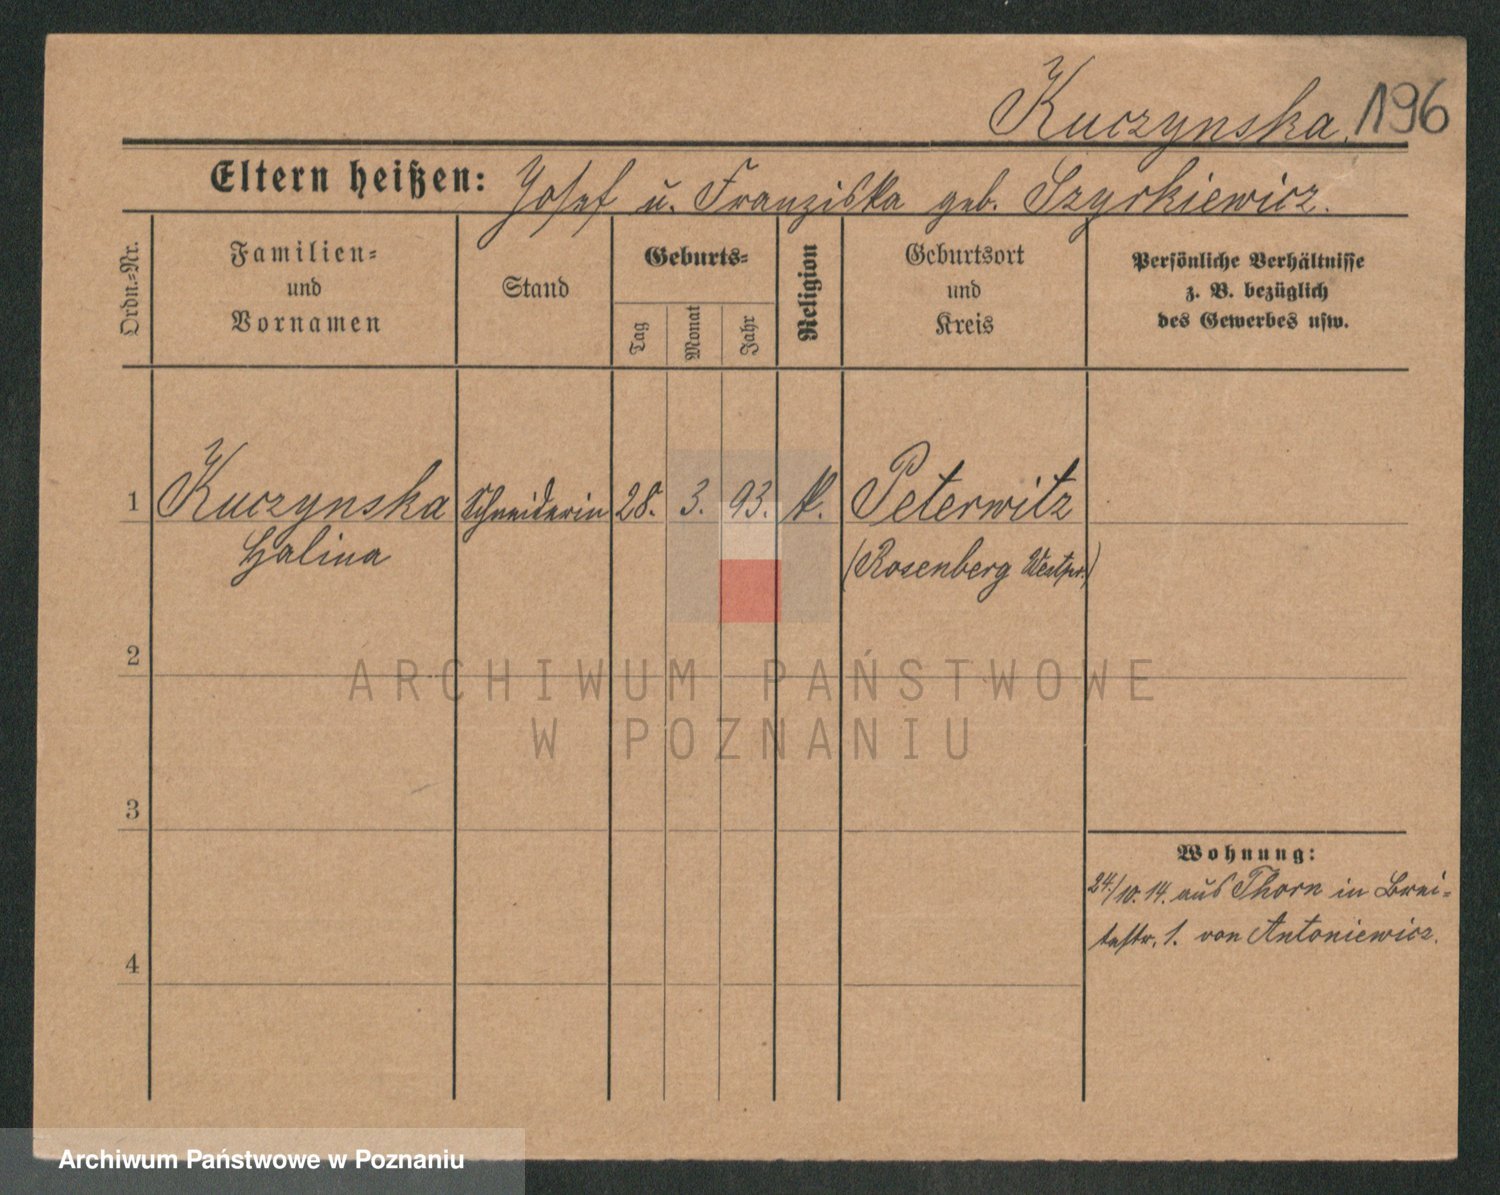 Kuczynska. 196
Eltern heißen: Josef u. Franziska geb. Szyrkiewicz.
Ordn.-Nr.
Familien-
und
Vornamen
Stand
Geburts-
Tag
Monat
Jahr
Religion
Geburtsort
und
Kreis
Persönliche Verhältnisse
z. B. bezüglich
des Gewerbes usw.
1 Kuczynska Schneiderin 28. 3. 93. k. Peterwitz
Halina (Rosenberg Westpr.)
2
ARCHIWUM PAŃSTWOWE
W POZNANIU
3
Wohnung:
24./10. 14. aus Thorn in Brei-
testr. 1. von Antoniewicz.
4
Archiwum Państwowe w Poznaniu